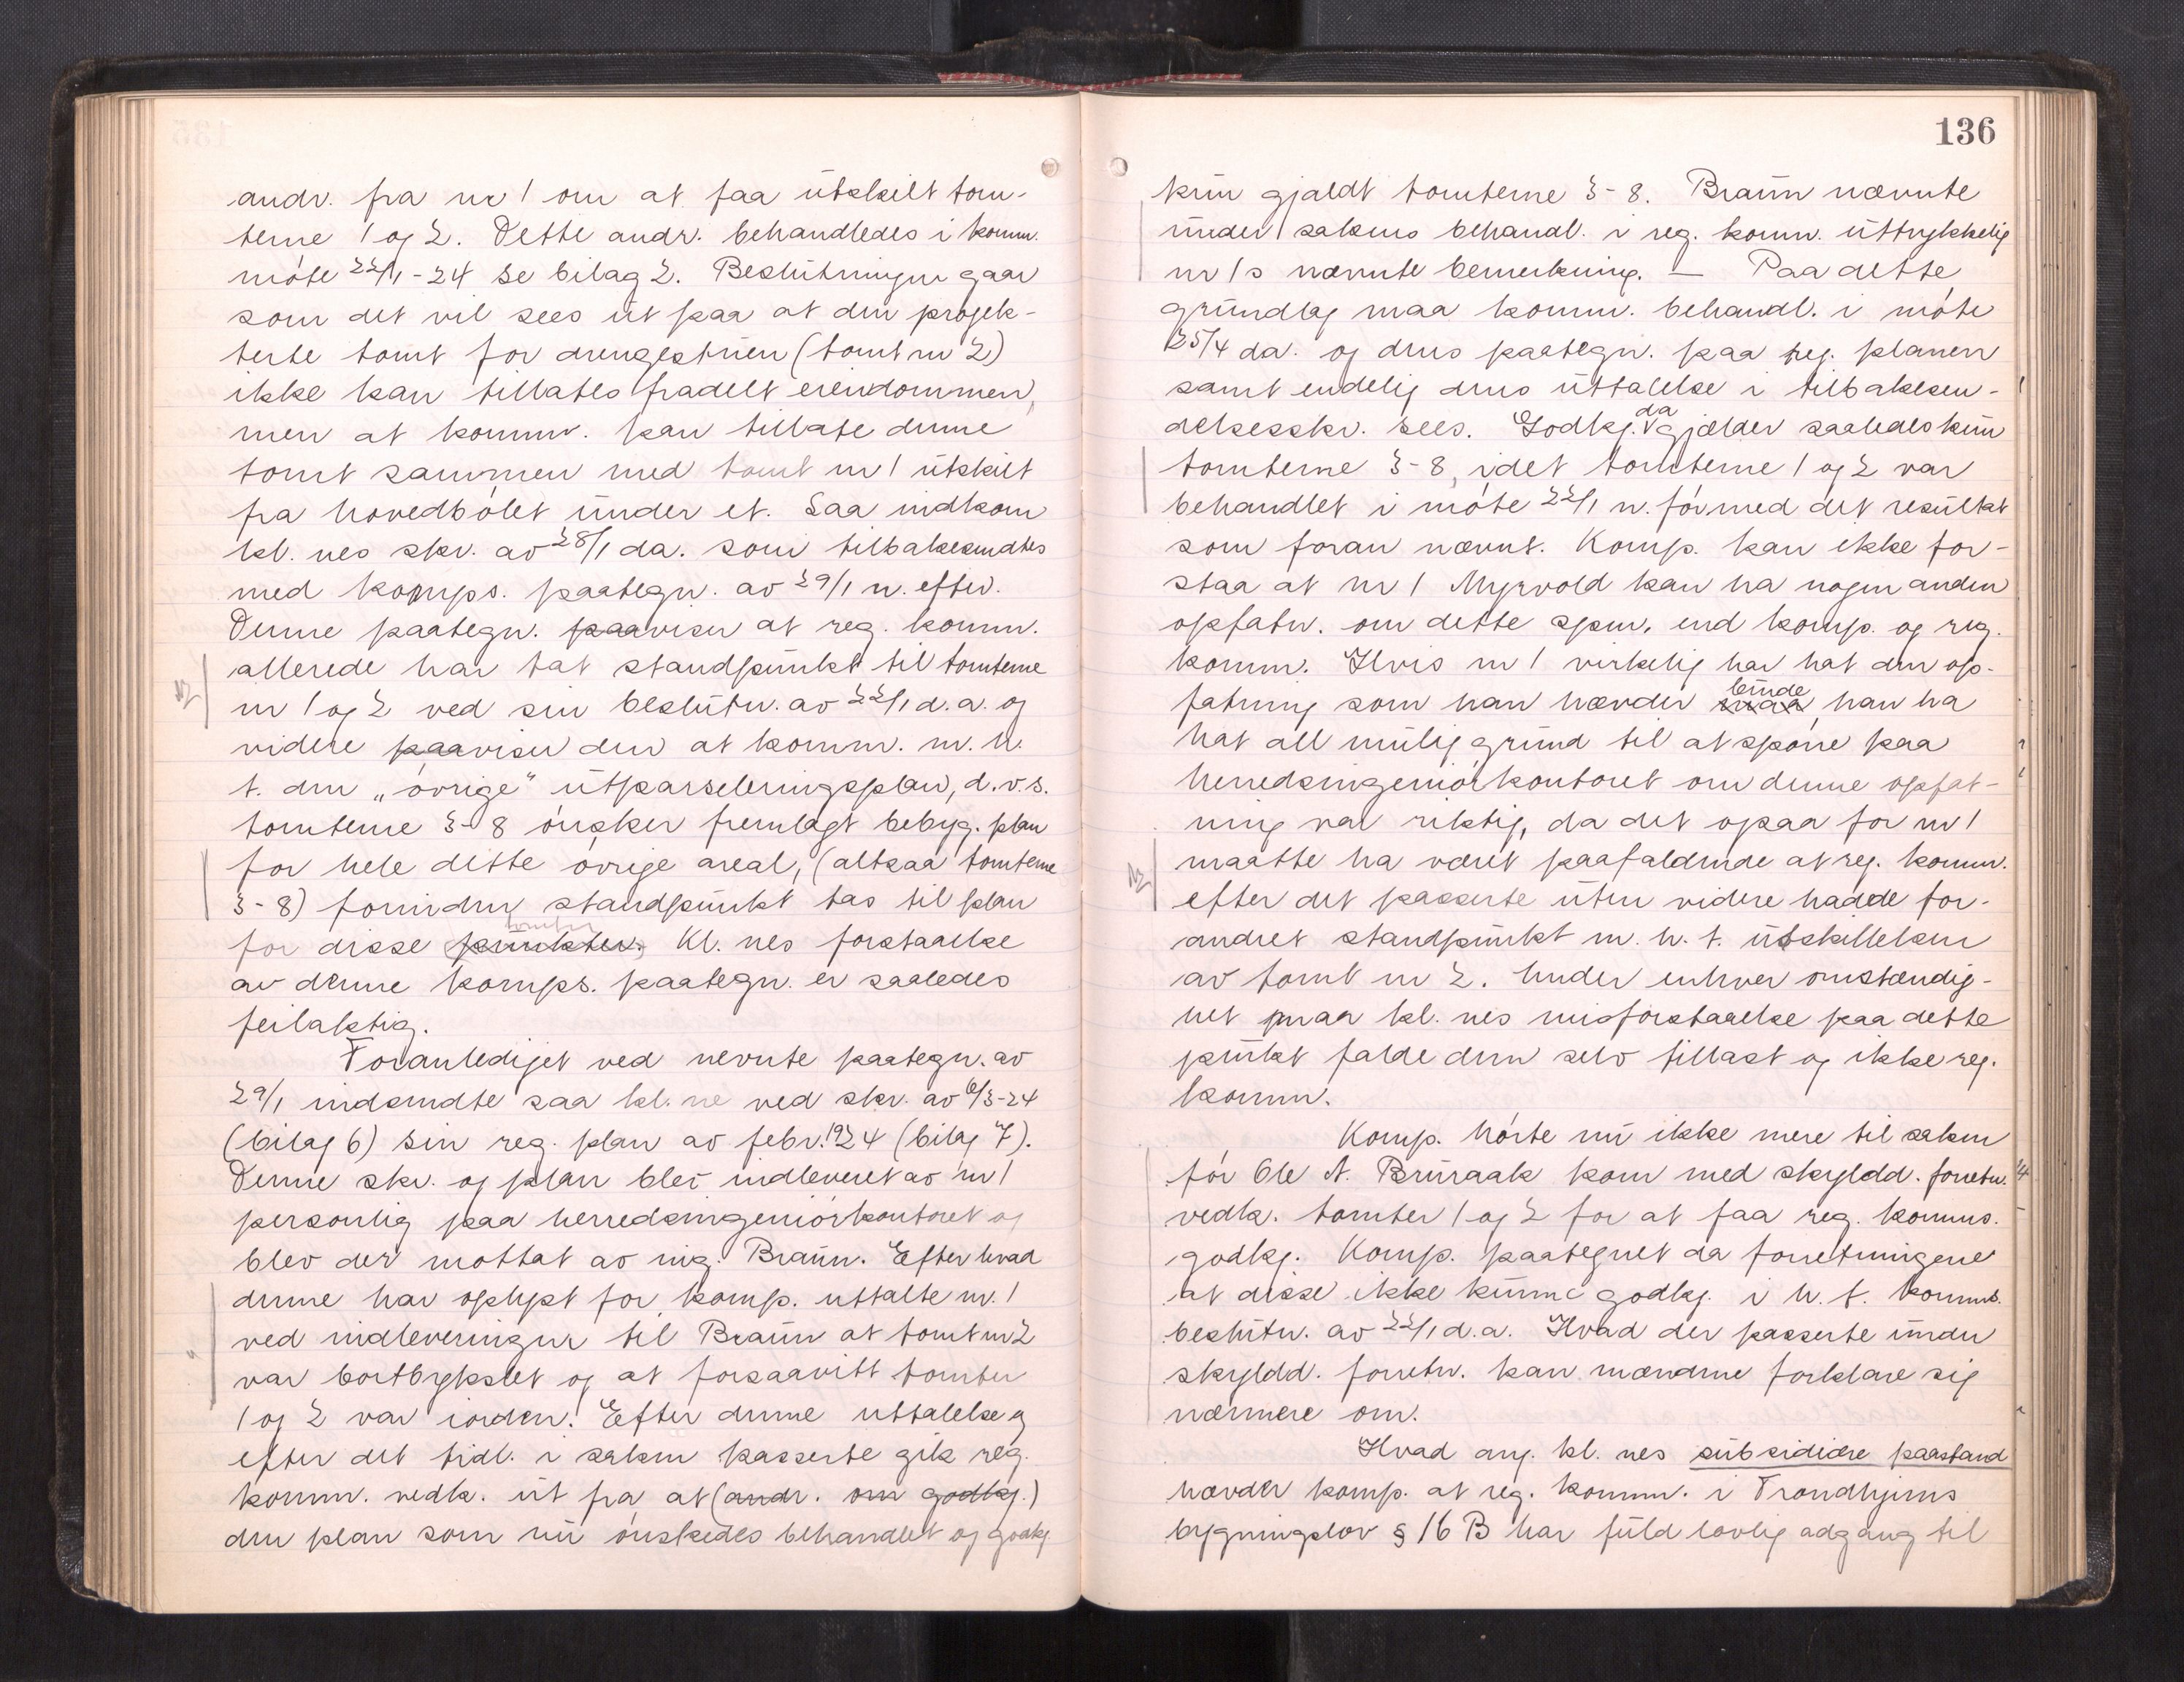 andr. fra nr 1 om at faa utskilt tom-
terne 1 og 2. Dette andr. behandledes i komm.
møte 22/1-24 se bilag 2. Beslutningen gaar
som det vil sees ut paa at den projek-
terte tomt for drengestuen (tomt nr 2)
ikke kan tillates fradelt eiendommen,
men at komm. kan tillate denne
tomt sammen med tomt nr 1 utskilt
fra hovedbølet under et. Saa indkom
kl. nes skr. av 28/1 da. som tilbakesendtes
med komps. paategn. av 29/1 n. efter.
Denne paategn. paaviser at reg. komm.
allerede har tat standpunkt til tomterne
nr 1 og 2 ved sin beslutn. av 22/1 d.a. og
videre paaviser den at komm. m.h.
t. den "øvrige" utparseleringsplan, d.v.s.
tomterne 3-8 ønsker fremlagt bebyg. plan
for hele dette øvrige areal, (altsaa tomterne
3-8) forinden standpunkt tas til plan
tomter
for disse punkter. Kl. nes forstaaelse
av denne komps. paategn. er saaledes
feilaktig.
Foranlediget ved nevnte paategn. av
29/1 indsendte saa kl. ne ved skr. av 6/3-24
(bilag 6) sin reg. plan av febr. 1924 (bilag 7).
Denne skr. og plan blev indleveret av nr 1
personlig paa herredsingeniørkontoret og
blev der mottat av ing. Braun. Efter hvad
denne har oplyst for komp. uttalte nr. 1
ved indleveringen til Braun at tomt nr 2
var bortbykslet og at forsaavitt tomter
1 og 2 var iorden. Efter denne uttalelse og
efter det tidl. i saken passerte gik reg.
komm. vedk. ut fra at (andr. om godkj.)
den plan som nu ønskedes behandlet og godkj
136
kun gjaldt tomterne 3-8. Braun nævnte
under sakens behandl. i reg. komm. uttrykkelig
nr 1s nævnte bemerkning. — Paa dette
grundlag maa komm. behandl. i møte
25/4 da. og dens paategn. paa reg. planen
samt endelig dens uttalelse i tilbakesen-
da
delsesskr. sees. Godkj. gjælder saaledes kun
tomterne 3-8, idet tomterne 1 og 2 var
behandlet i møte 22/1 n. før med det resultat
som foran nævnt. Komp. kan ikke for-
staa at nr 1 Myrvold kan ha nogen anden
opfatn. om dette spm. end komp. og reg.
komm. Hvis nr 1 virkelig har hat den op-
burde
fatning som han hævder maa han ha
hat all mulig grund til at spørre paa
herredsingeniørkontoret om denne opfat-
ning var riktig, da det ogsaa for nr 1
maatte ha været paafaldende at reg. komm.
efter det passerte uten videre hadde for-
andret standpunkt m.h.t. utskillelsen
av tomt nr 2. Under enhver omstændig-
het maa kl. nes misforstaaelse paa dette
punkt falde dem selv tillast og ikke reg.
komm.
Komp. hørte nu ikke mere til saken
før Ole N. Bruraak kom med skyldd. forretn.
vedk. tomter 1 og 2 for at faa reg. komms.
godkj. Komp. paategnet da forretningene
at disse ikke kunne godkj. i h.t. komms.
beslutn. av 22/1 d.a. Hvad der passerte under
skyldd. forretn. kan mændene forklare sig
nærmere om.
Hvad ang. kl. nes subsidiære paastand
hævder komp. at reg. komm. i Trondhjems
bygningslov § 16 B har fuld lovlig adgang til